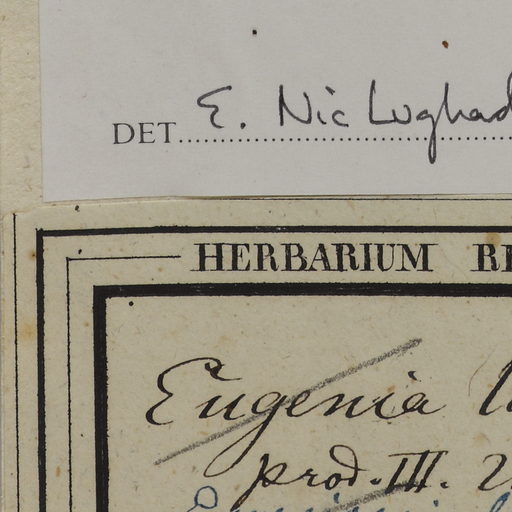 DET E. Nic Lughad
HERBARIUM
Eugenia
prod. III.